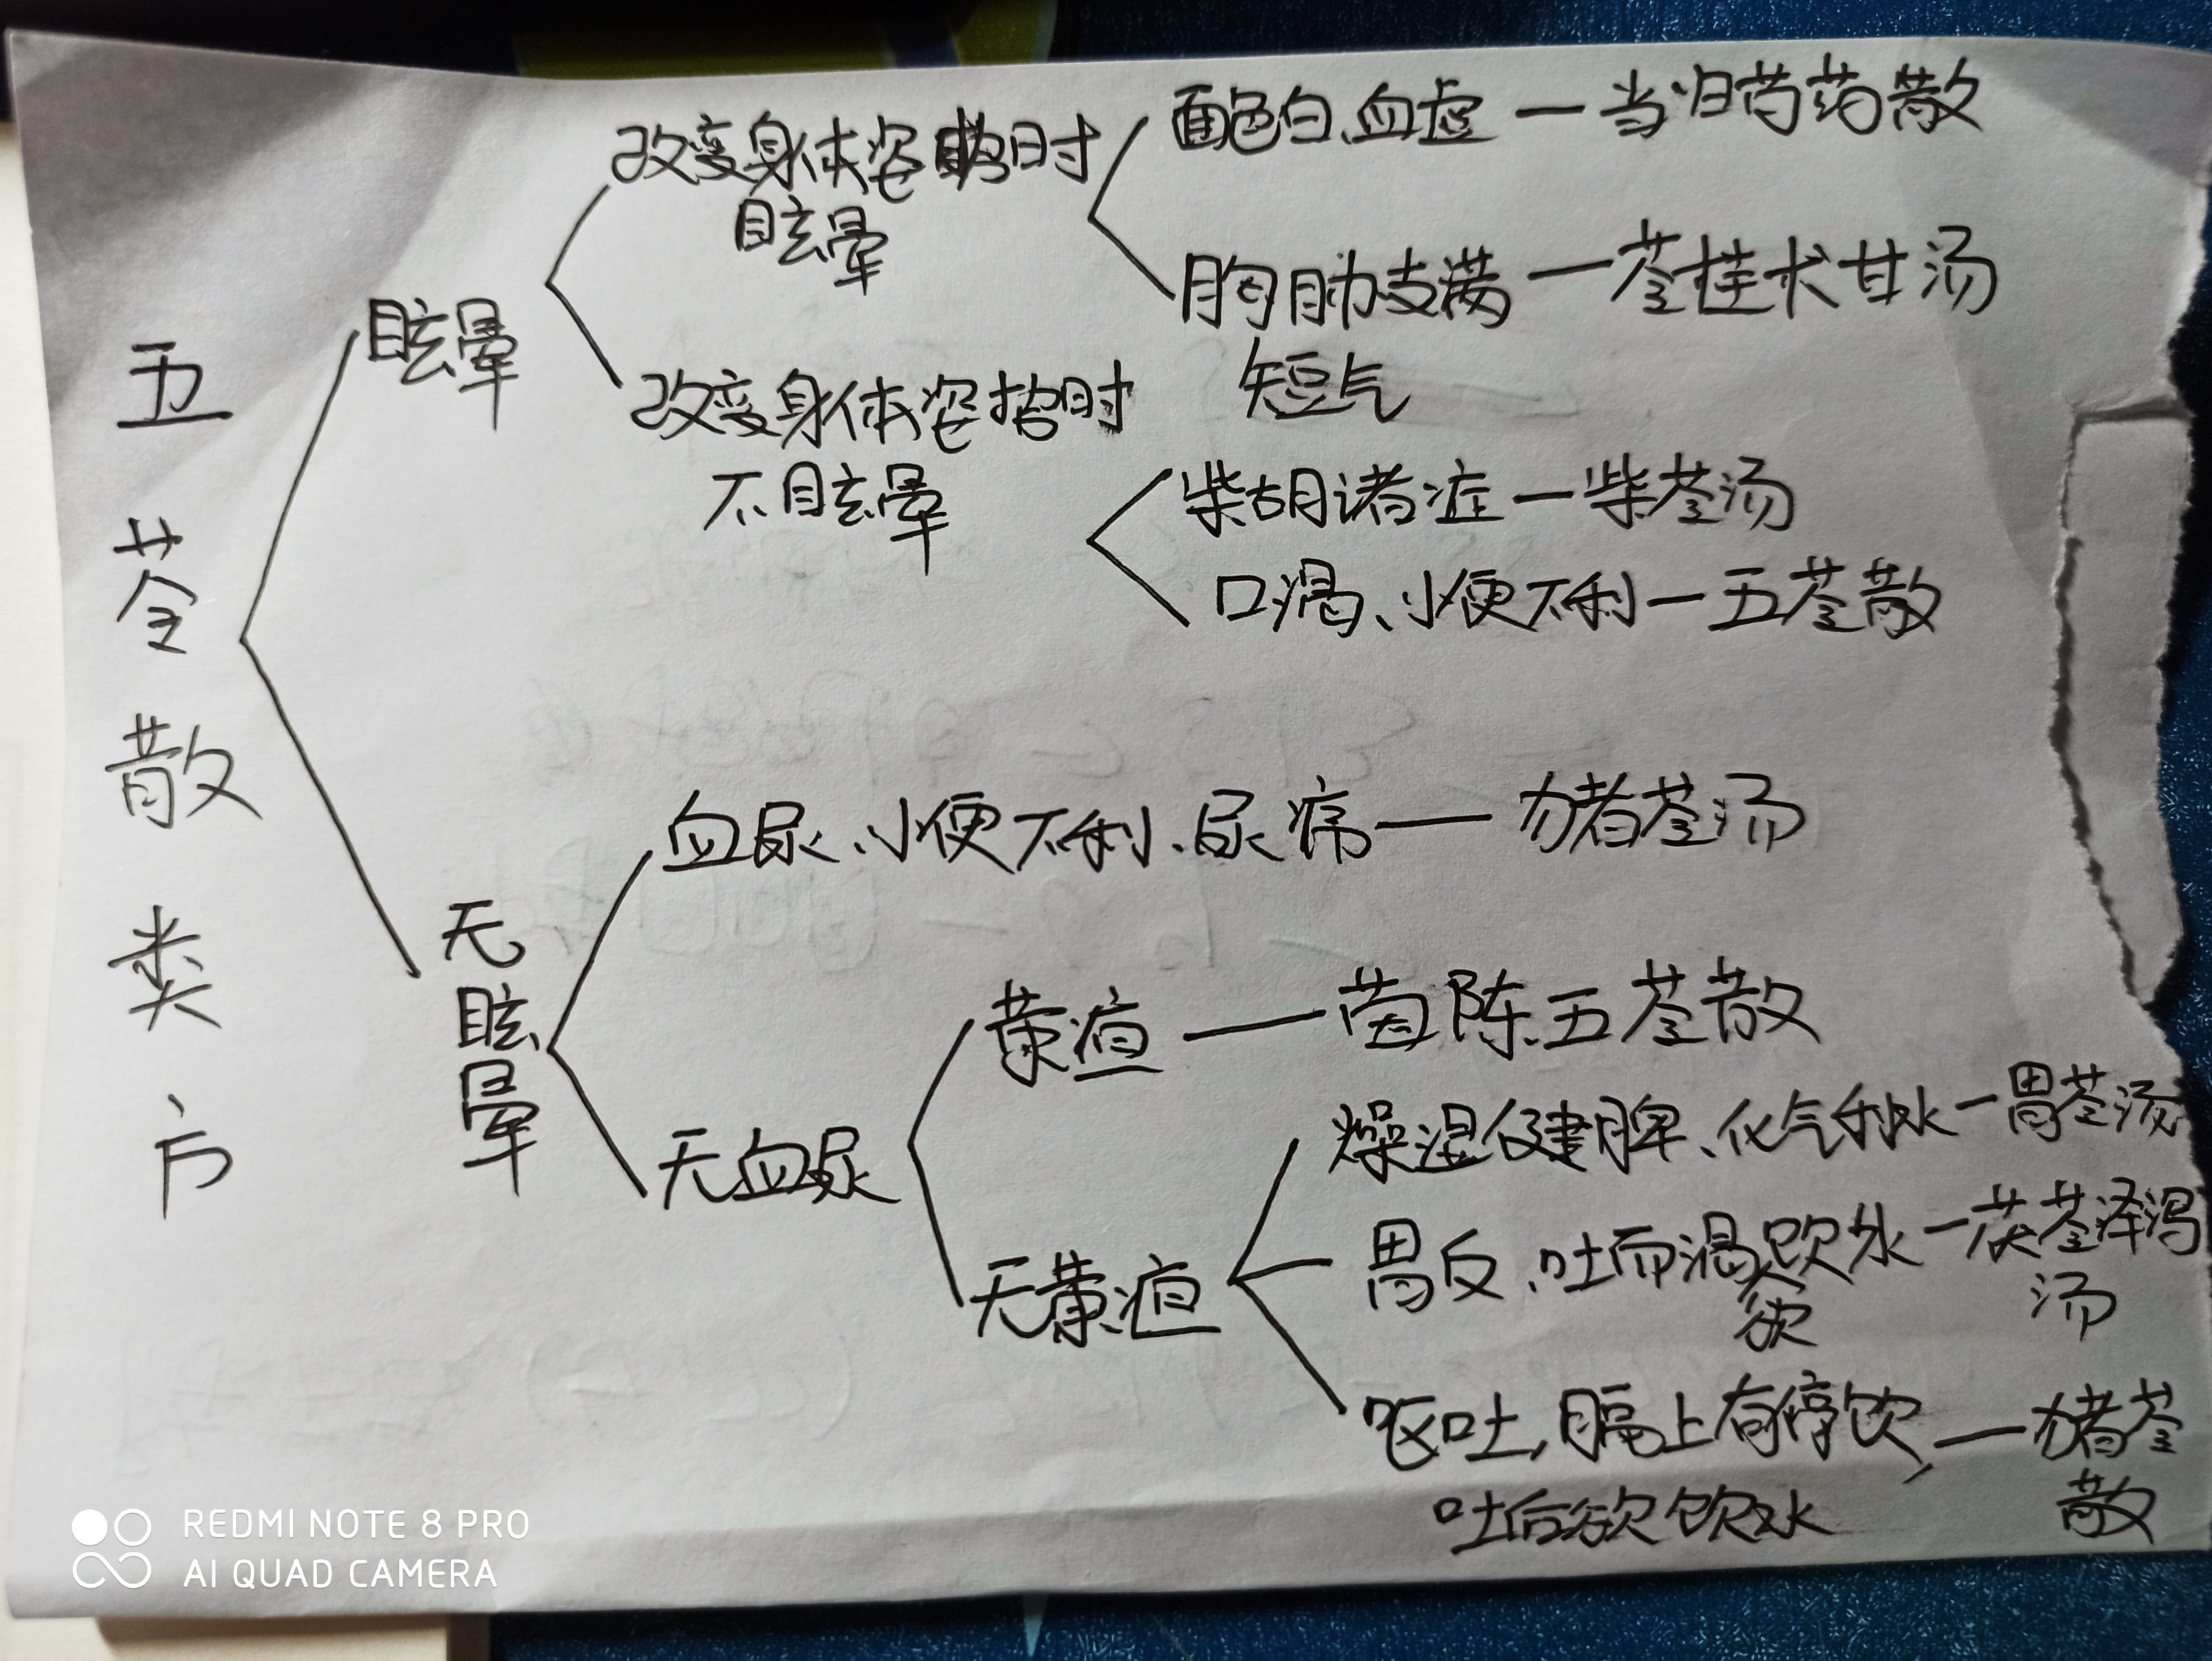 五苓散类方
眩晕
改变身体姿势时
眩晕
面色白、血虚一当归芍药散
胸胁支满一苓桂术甘汤
短气
改变身体姿势时
不眩晕
柴胡诸症一柴苓汤
口渴、小便不利一五苓散
无眩晕
血尿、小便不利、尿痛一猪苓汤
无血尿
黄疸一茵陈五苓散
无黄疸
燥湿健脾、化气利水一胃苓汤
胃反、吐而渴欲饮水一茯苓泽泻
汤
呕吐,膈上有停饮,一猪苓
吐后欲饮水
散
REDMI NOTE 8 PRO
AI QUAD CAMERA